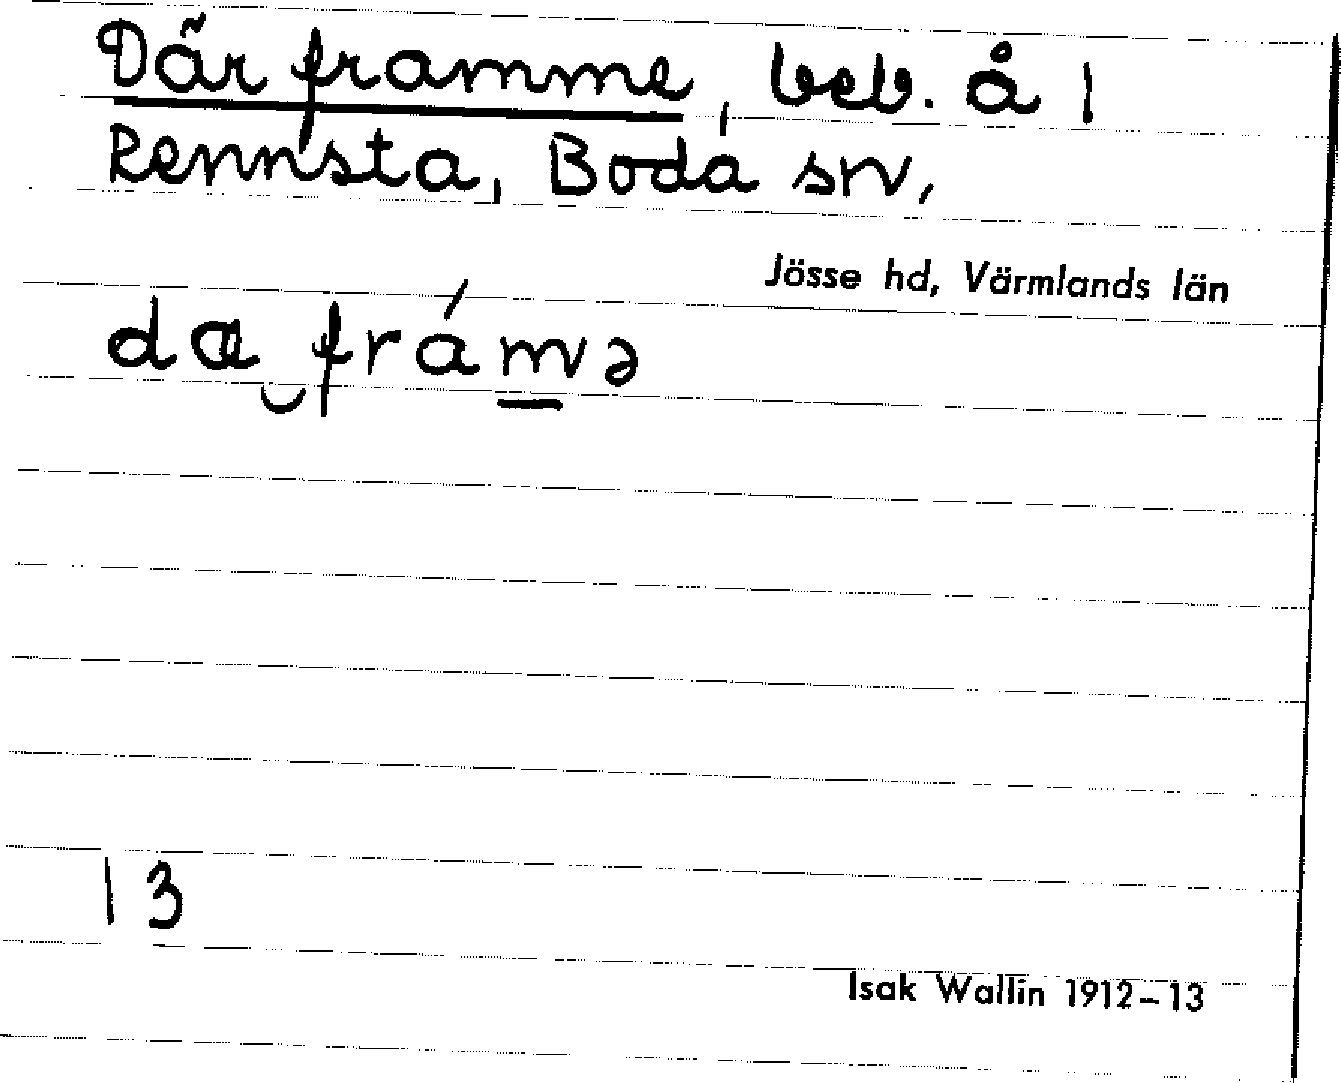 Där framme, beb. å 1
Rennsta, Boda sn,
Jösse hd, Värmlands län
dœ‿frám̲ə
13
Isak Wallin 1912–13